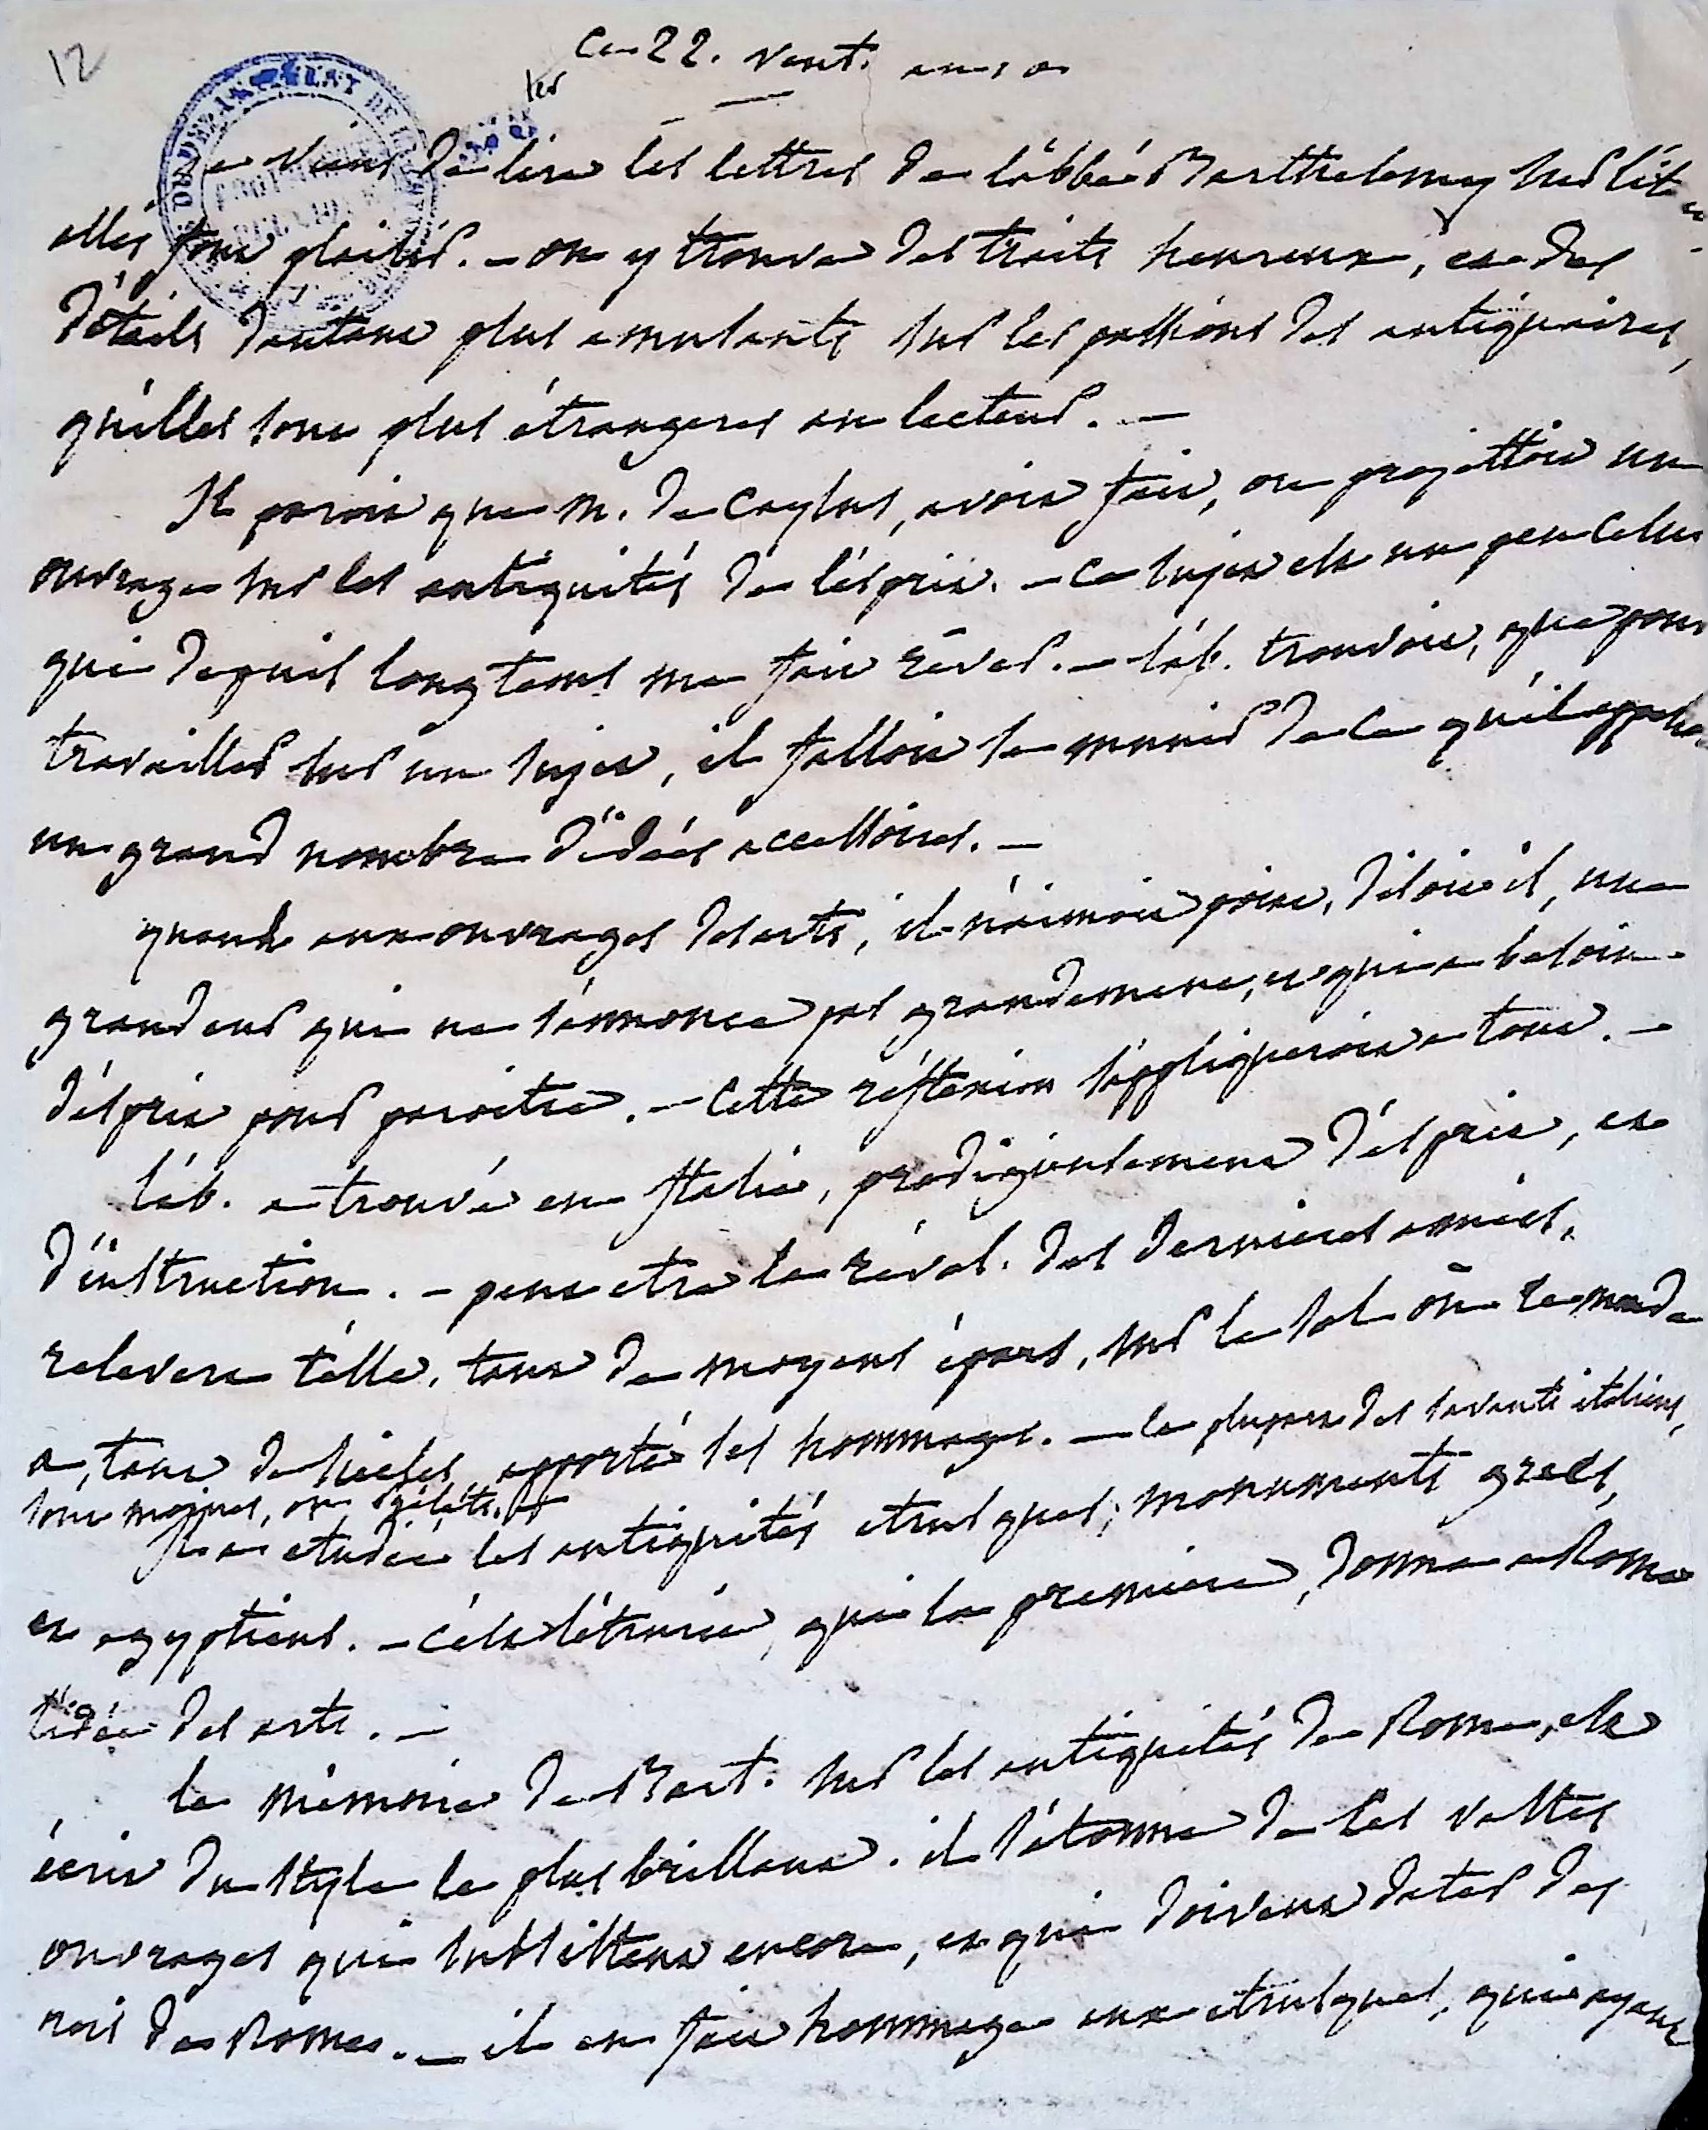 12
ce 22. vent. an 10
je viens de lire les lettres de l'abbé Barthelemy sur l'it
elles font plaisir. – on y trouve des traits heureux, et des
détails d'autant plus amusants sur les passions des antiquaires,
qu'elles sont plus étrangeres au lecteur. –
Il paroit que M. de Caylus, avoit fait, ou projettoit un
ouvrage sur les antiquités de l'esprit. – ce sujet est un peu celui
qui depuis longtems me fait rêver. – l'ab. trouvoit, que pour
travailler sur un sujet, il falloit se munir de ce qu'il appelle
un grand nombre d'idées accessoires. –
quant aux ouvrages des arts, il n'aimoit point, disoit il, une
grandeur qui ne s'annonce pas grandement, et qui a besoin
d'esprit pour paroitre. – Cette réflexion s'appliqueroit a tout. –
l'ab. a trouvé en Italie, prodigieusement d'esprit, et
d'instruction. – peut etre la révol. des dernieres années,
relevera t'elle, tant de moyens épars, sur le sol où le monde
a, tant de siecles, apporté ses hommages. – la plupart des savants italiens,
sont moines, ou prélats. –
Il a etudié les antiquités etrusques, monuments grecs,
et egyptiens. – c'est l'étrurie, qui la premiere, donna a Rome
l'idée des arts. –
le mémoire de Bart. sur les antiquités de Rome, est
écrit du style le plus brillant. il s'étonne de ses vastes
ouvrages qui subsistent encore, et qui doivent dater des
rois de Rome. – il en fait hommage aux etrusques, qui ayant